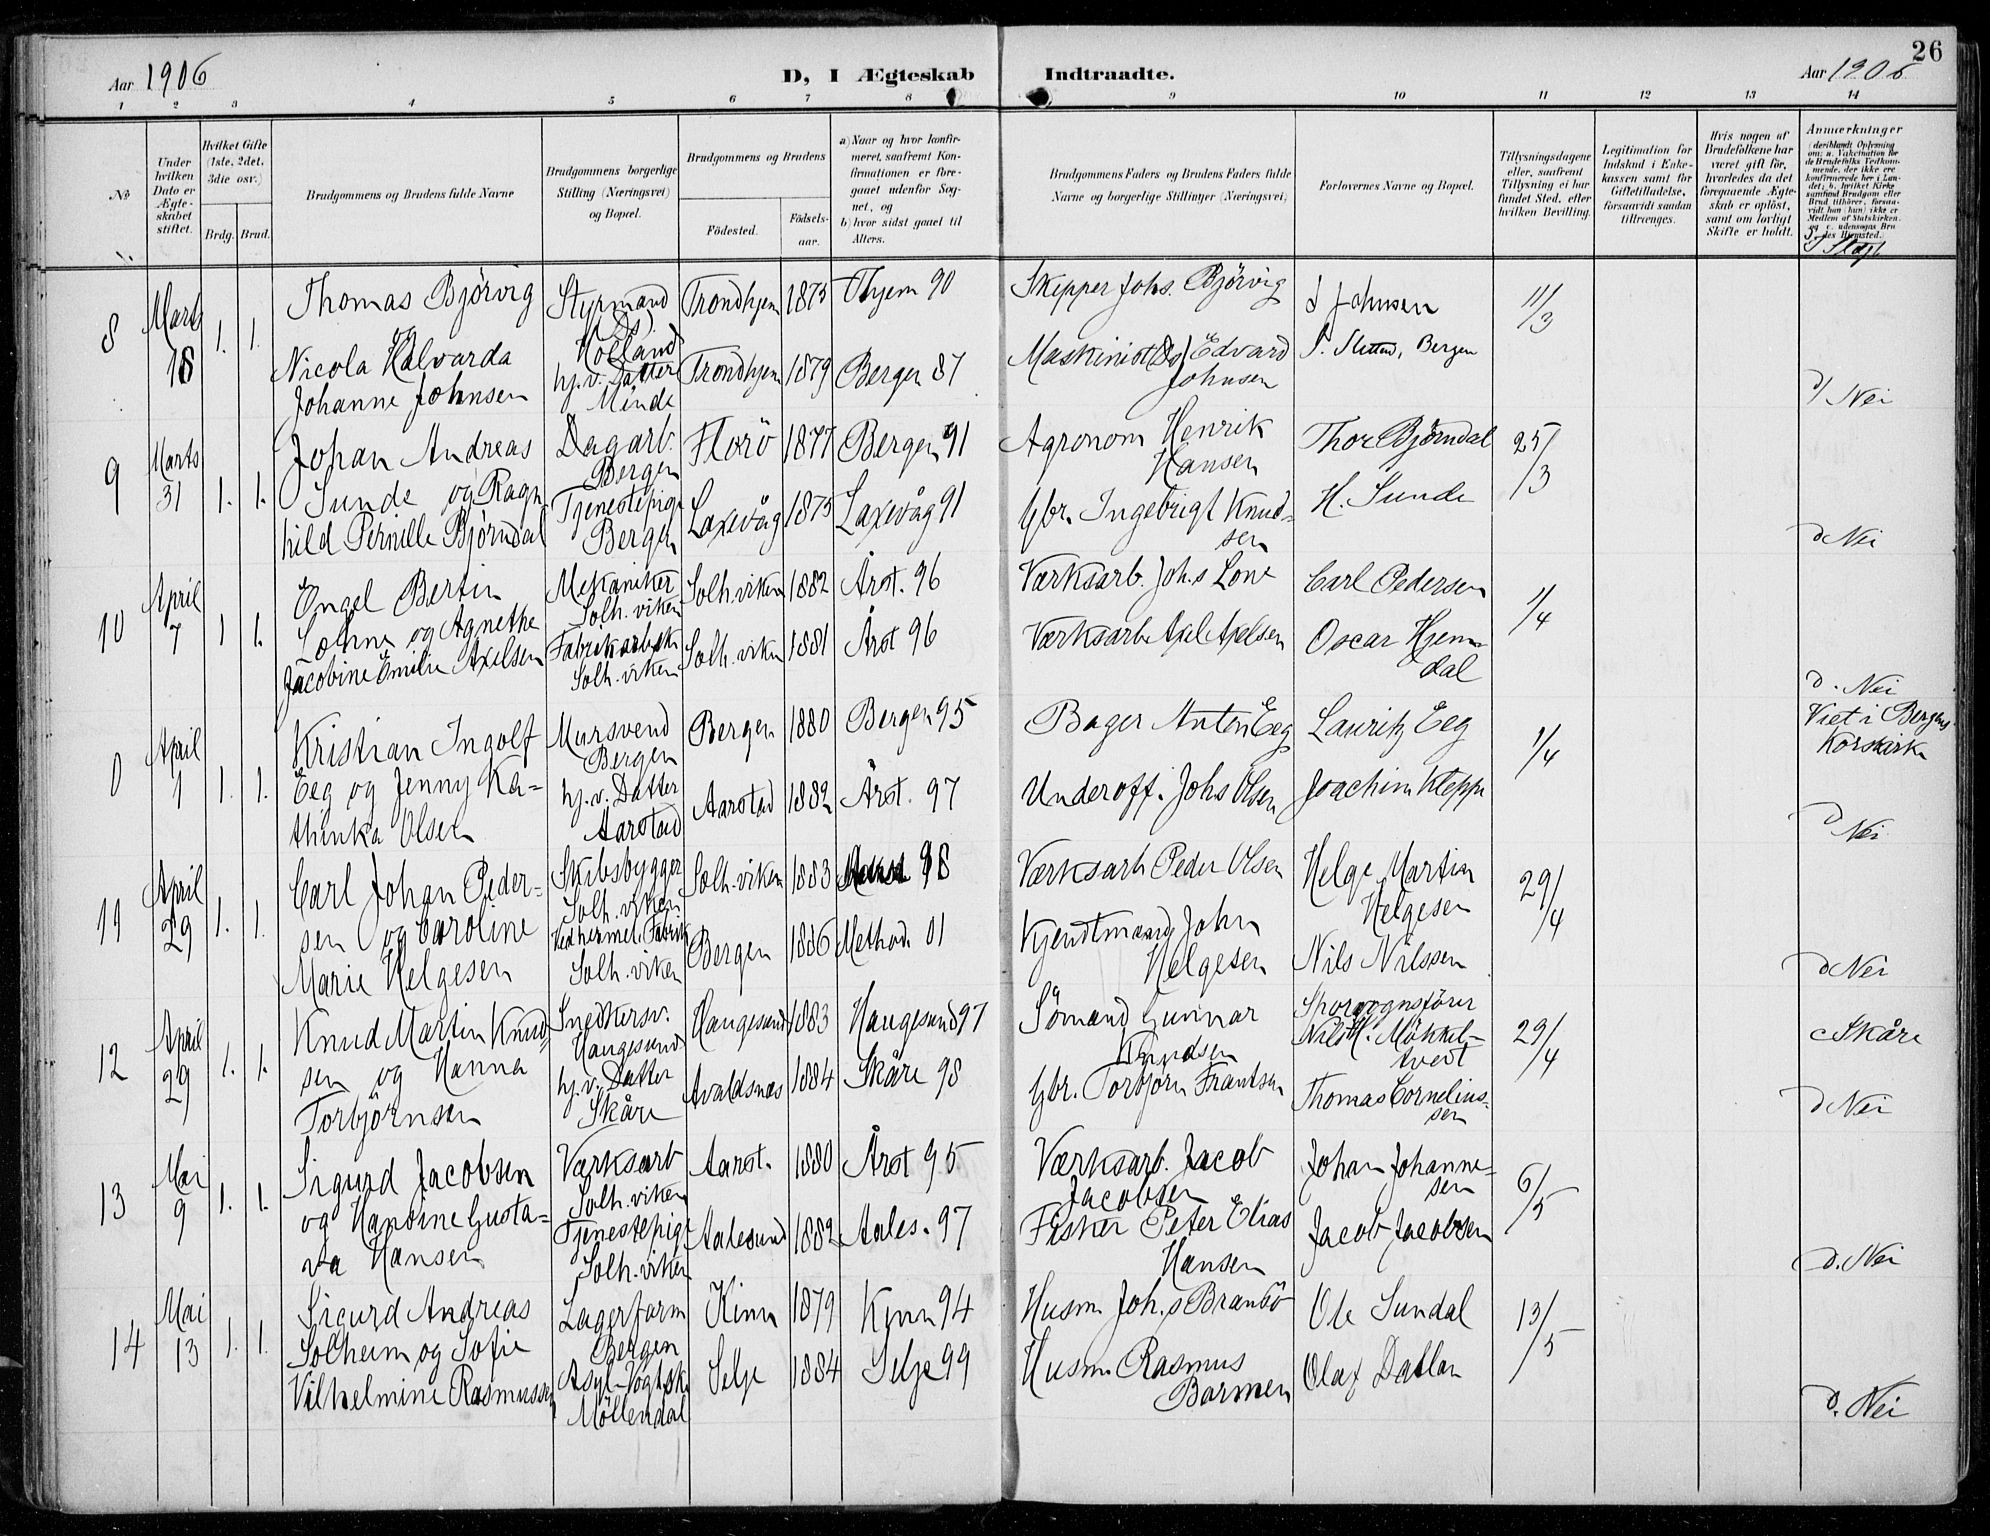 26
Aar 1906 D, I Ægteskab Indtraadte. Aar 1906
1 2 3 4 5 6 7 8 9 10 11 12 13 14
№
Under hvilken Dato er Ægteskabet stiftet.
Hvilket Gifte (1ste, 2det, 3die osv.)
Brdg. Brud.
Brudgommens og Brudens fulde Navne
Brudgommens borgerlige Stilling (Næringsvei) og Bopæl.
Brudgommens og Brudens
Fødested. Fødselsaar.
a) Naar og hvor konfirmeret, saafremt Konfirmationen er foregaaet udenfor Sognet, og
b) hvor sidst gaaet til Alters.
Brudgommens Faders og Brudens Faders fulde Navne og borgerlige Stillinger (Næringsvei)
Forlovernes Navne og Bopæl.
Tillysningsdagene eller, saafremt Tillysning ei har fundet Sted, efter hvilken Bevilling.
Legitimation for Indskud i Enkekassen samt for Giftetilladelse, forsaavidt saadan tiltrænges.
Hvis nogen af Brudefolkene har været gift før, hvorledes da det foregaaende Ægteskab er opløst, samt om lovligt Skifte er holdt.
Anmærkninger (deriblandt Oplysning om: a. Vakcination for de Brudefolks Vedkommende, der ikke ere konfirmerede her i Landet; b. hvilket Kirkesamfund Brudgom eller Brud tilhører, forsaavidt han (hun) ikke er Medlem af Statskirken, og c. udensogns Brudes Hjemsted.)
8 Marts 18 1. 1.
Thomas Bjørvig
og
Nicola Halvarda
Johanne Johnsen
Styrmand
(Ds)
Holland
hj.v. Datter
Minde
Trondhjem 1875 Thjem 90
Trondhjem 1879 Bergen 87
Skipper Johs. Bjørvig
Maskinist (Ds) Edvard
Johnsen
S Johnsen
S. Sletten, Bergen
11/3
d/ Nei
9 Marts 31 1. 1.
Johan Andreas
Sunde og Ragn
hild Pernille Bjørndal
Dagarb.
Bergen
Tjenestepige
Bergen
Florö 1877 Bergen 91
Laxevåg 1875 Laxevåg 91
Agronom Henrik
Hansen
Gbr. Ingebrigt Knud=
sen
Thor Bjørndal
H. Sunde
25/3
d Nei
10 April 7 1 1.
Engel Bertin
Lohne og Agnethe
Jacobine Emilie Axelsen
Mekaniker
Solh.viken
Fabrikarbske
Solh.viken
Solh.viken 1882 Arst. 96
Solh.viken 1881 Årst 96
Værksarb. Joh.s Lone
Værksarb Axel Axelsen
Carl Pedersen
Oscar Hjem=
dal
1/4
d. Nei
0 April 1 1. 1.
Kristian Ingolf
Eeg og Jenny Ka=
thinka Olsen
Mursvend
Bergen
hj.v. Datter
Aarstad
Bergen 1880 Bergen 95
Aarstad 1882 Årst. 97
Bager Anton Eeg
Underoff. Johs Olsen
Lauritz Eeg
Joachim Kleppe
1/4
Viet i Bergens
Korskirke
d Nei
11 April 29 1. 1.
Carl Johan Peder=
sen og Caroline
Marie Helgesen
Skibsbygger
Solh.viken
Ved hermet. Fabrik
Solh.viken
Solh.viken 1883 98
Bergen 1886 Method. 01
Værksarb Peder Olsen
Kjendtmand John
Helgesen
Helge Martin
Helgesen
Nils Nilssen
29/4
d Nei
12 April 29 1. 1.
Knud Martin Knud=
sen og Hanna
Torbjörnsen
Snedkersv.
Haugesund
hj.v. Datter
Skåre
Haugesund 1883 Haugesund 97
Avaldsnæs 1884 Skåre 98
Sömand Gunnar
Knudsen
Gbr. Torbjörn Frantsen
Sporvognsförer
Nils H. Mökkel=
tvedt
Thomas Cornelius=
sen
29/4
c Skåre
d Nei
13 Mai 9 1. 1.
Sigurd Jacobsen
og Hansine Gusta=
va Hansen
Værksarb
Solh.viken
Tjenestepige
Solh.viken
Aarst. 1880 Årst 95
Aalesund 1882 Aales. 97
Værksarb. Jacob
Jacobsen
Fisker Peter Elias
Hansen
Johan Johanne=
sen
Jacob Jacobsen
6/5
d. Nei
14 Mai 13 1. 1.
Sigurd Andreas
Solheim og Sofie
Vilhelmine Rasmussen
Lagerform
Bergen
Asyl-Vogtske
Möllendal
Kinn 1879 Kinn 94
Selje 1884 Selje 99
Husm. Joh.s Brandsö
Husm Rasmus
Barmen
Ole Sundal
Olaf Datlan
13/5
d. Nei